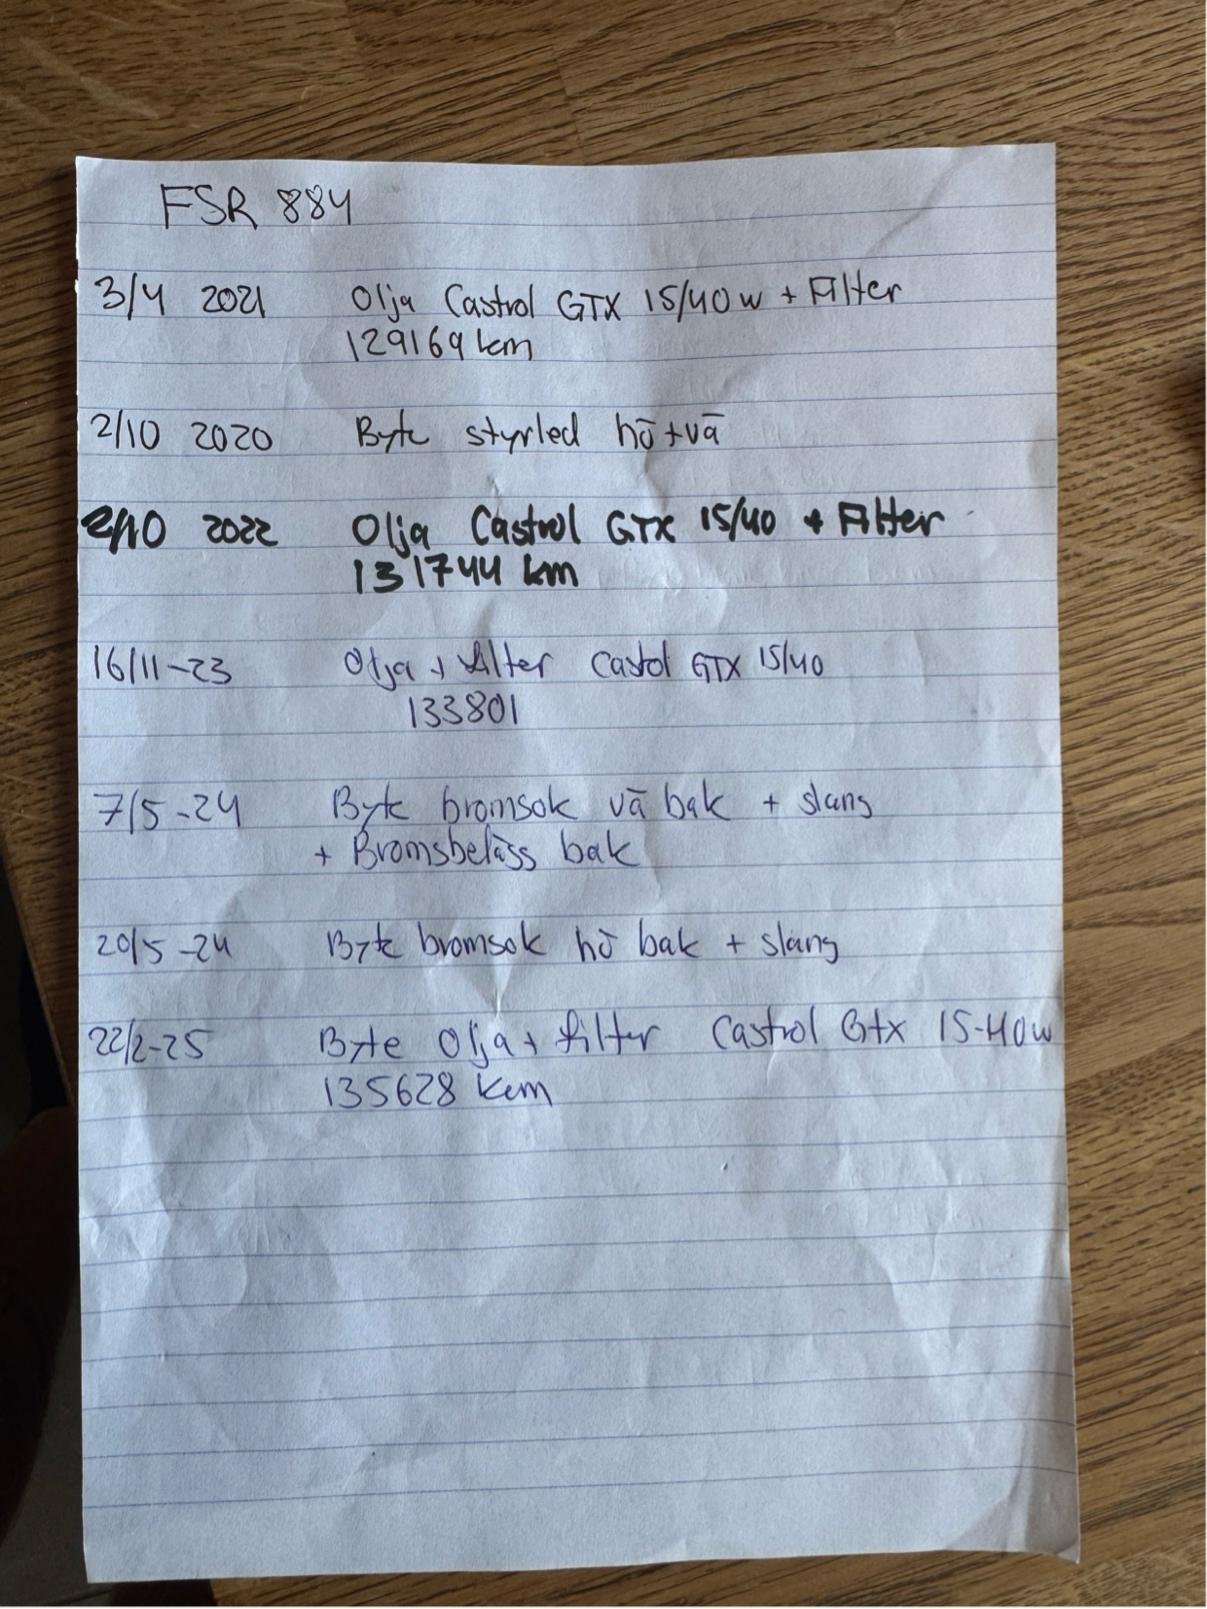 FSR 884
3/4 2021 Olja Castrol GTX 15/40w + Filter
129169 km
2/10 2020 Byte styrled hö+vä
2/10 2022 Olja Castrol GTX 15/40 + Filter
131744 km
16/11-23 Olja + filter Castol GTX 15/40
133801
7/5-24 Byte bromsok vä bak + slang
+ Bromsbelägg bak
20/5-24 Byte bromsok hö bak + slang
22/2-25 Byte Olja + filter Castrol Gtx 15-40w
135628 km